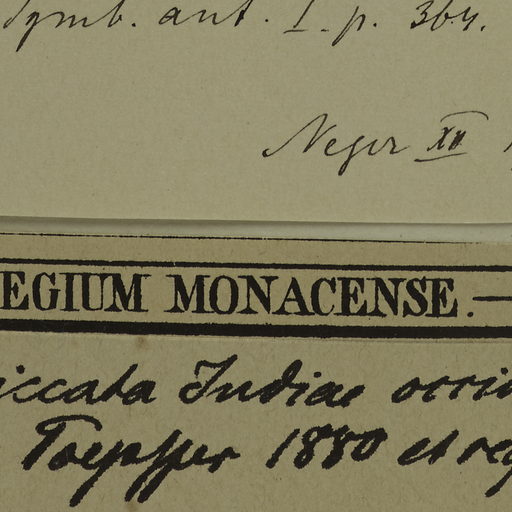 Symb. ant. I. p. 364.
Neger XII
EGIUM MONACENSE.—
iccata Indiae occi
Toepffer 1880 et re